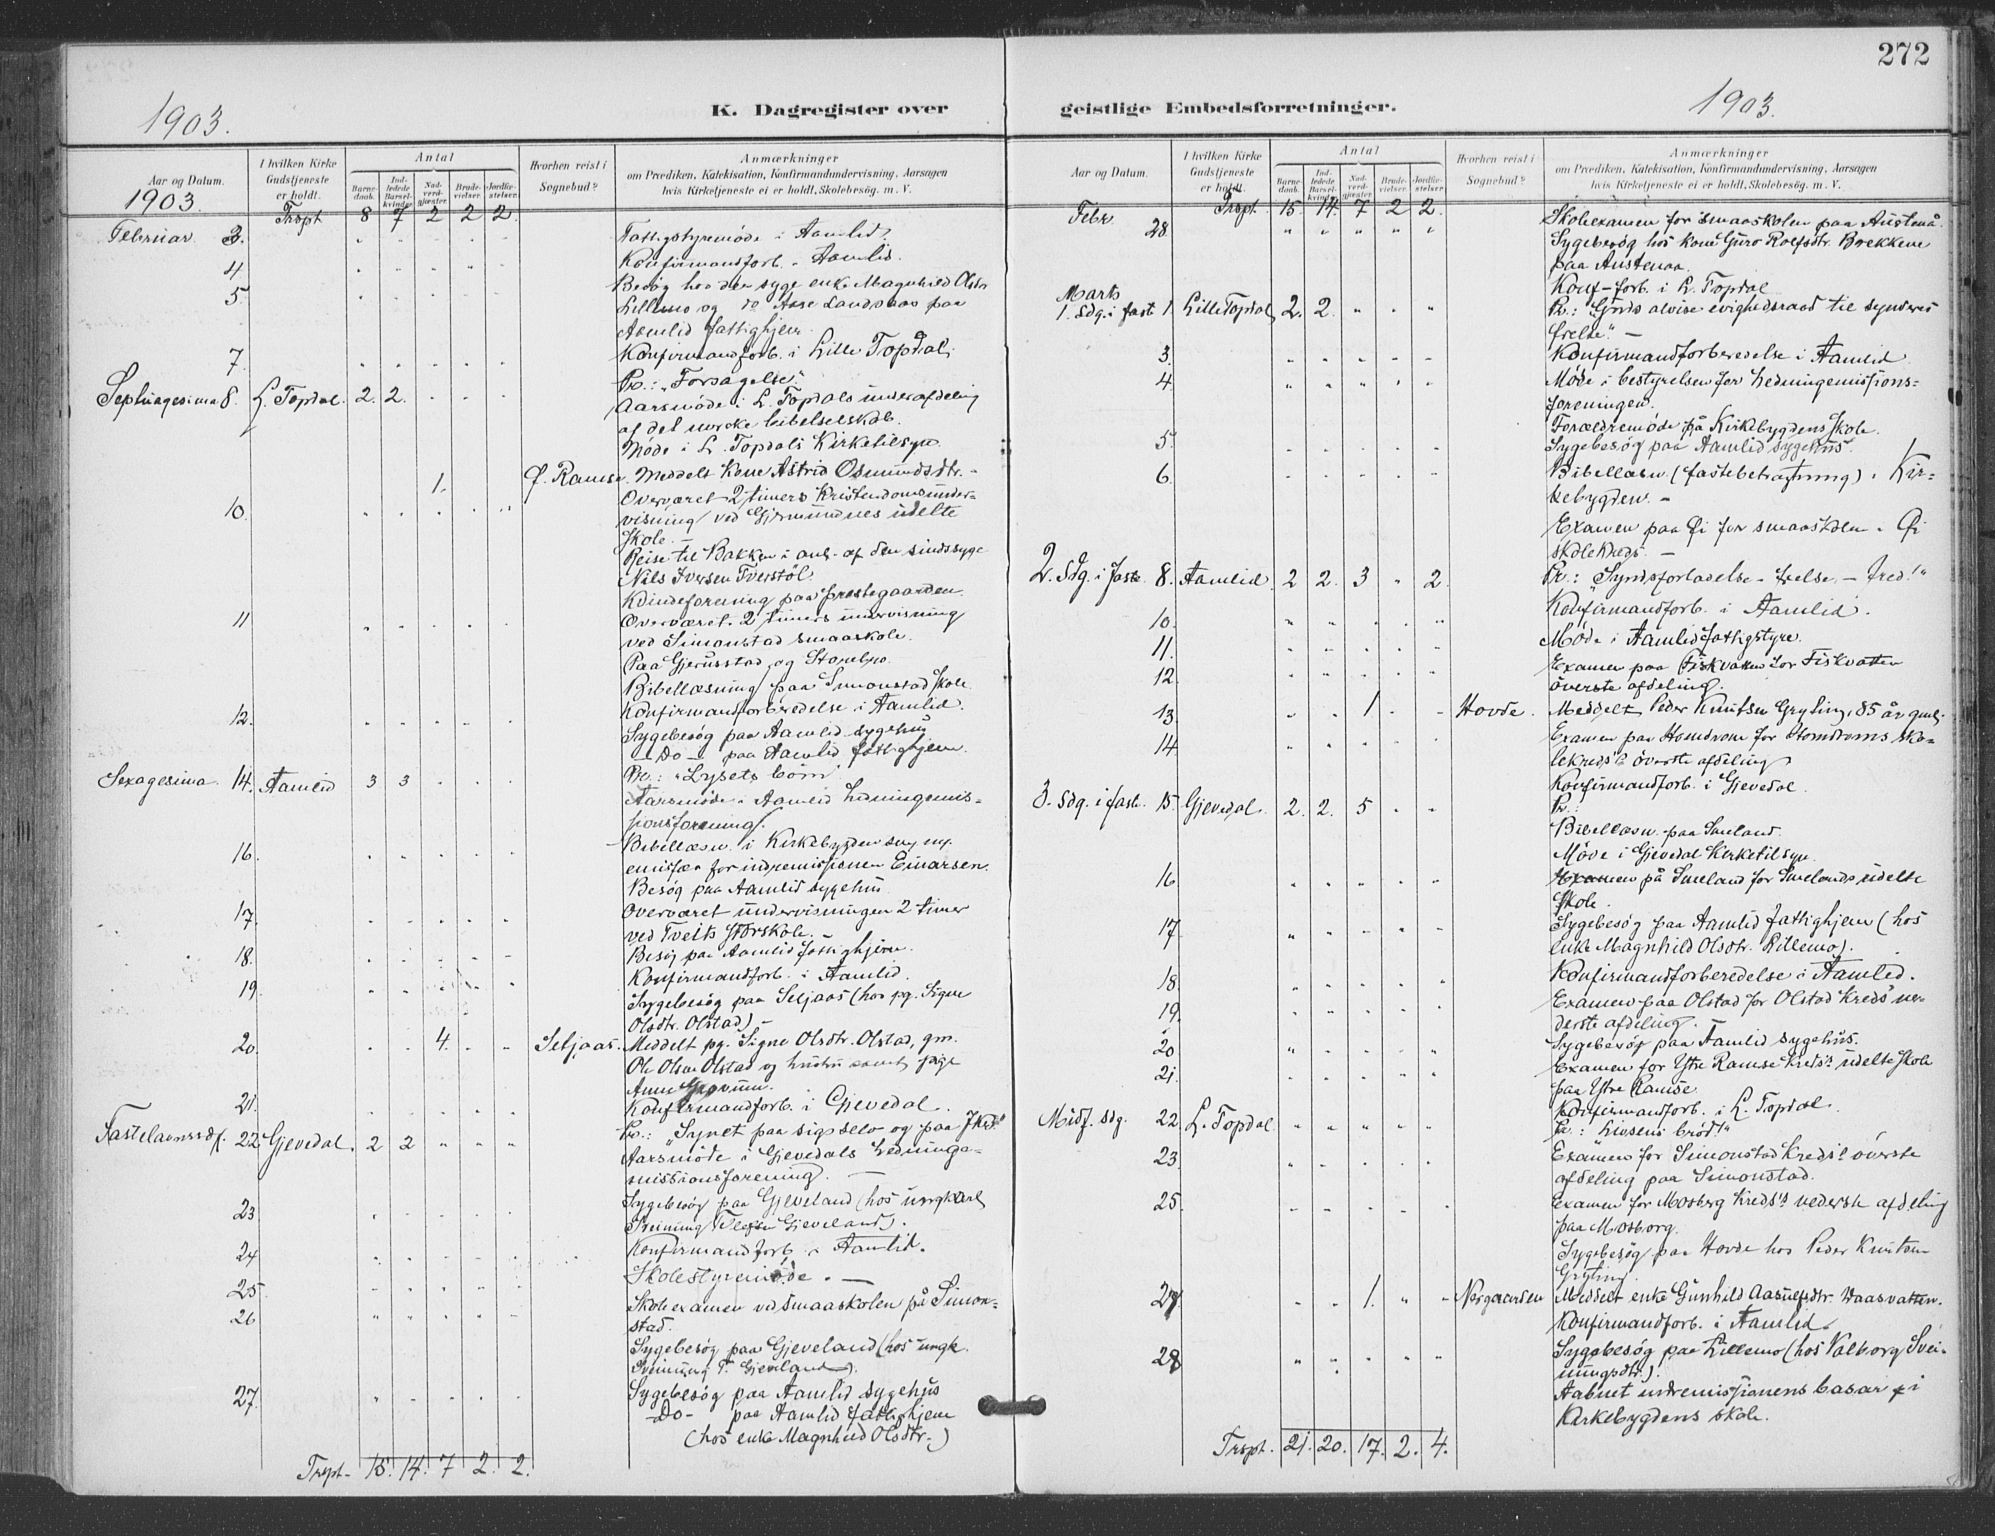 272
1903.
K. Dagregister over
Aar og Datum.
I hvilken Kirke Gudstjeneste er holdt.
Antal
Barne-daab.
Ind-ledede Barsel-kvinder.
Nad-verd-gjæster.
Brude-vielser.
Jordfæ-stelser.
Hvorhen reist i Sognebud?
Anmærkninger
om Prædiken, Katekisation, Konfirmandundervisning, Aarsagen
hvis Kirketjeneste ei er holdt, Skolebesøg. m. V.
1903. Trspt 8 7 2 2 2.
Februar 3. Fattigstyremöde i Aamlid.
4 Konfirmandforb. i Aamlid.
5 Besög hos den syge enke Magnhild Olsdr
Lillemo og do Aase Landsaas paa
Aamlid fattighjem.
7. Konfirmandforb. i Lille Topdal.
Pr.: "Forsagelse."
Septuagesima 8. L. Topdal. 2. 2. Aarsmöde i L. Topdals underafdeling
af det norske bibelselskab.
Möde i L. Topdals Kirketilsyn.
1. Ø. Ramse. Meddelt Kone Astrid Osmundsdtr.
10. Overværet 2 timers Kristendomsunder-
visning ved Gjermundnes udelte
Skole. -
Reise til Bakken i anl. af den sindssyge
Nils Iversen Tverstöl.
Kvindeforening paa prestegaarden.
11 Overværet 2 timers undervisning
ved Simonstad smaaskole.
Paa Gjerusstad og
Bibellæsning paa Simonstad Skole
12. Konfirmandforberedelse i Aamlid.
Sygebesög paa Aamlid sygehus
- Do - paa Aamlid fattighjem.
Sexagesima 14. Aamlid 3 3 Pr.: "Lysets börn"
Aarsmöde i Aamlid Hedningemis-
sionsforening.
16. Bibellæsn. i Kirkebygden
emissær for indremissionen Einarsen.
Besög paa Aamlid sygehus
17. Overværet undervisningen 2 timer
ved Tveits storskole. -
18. Besög paa Aamlid fattighjem.
Konfirmandforb. i Aamlid.
19. Sygebesög paa Seljaas (hos pg. Signe
Olsdtr. Olstad) -
20. 4. Seljaas. Meddelt pg. Signe Olsdtr. Olstad, gm.
Ole Olsen Olstad og hustru samt pige
Anne
21. Konfirmandforb. i Gjevedal.
Fastelavnssdg. 22. Gjevedal. 2 2 Pr.: "Synet paa sig selv og paa
Aarsmöde i Gjevedals Hedninge-
missionsforening. -
23 Sygebesög paa Gjeveland (hos ungkarl
Sveinung Gjeveland).
24 Konfirmandforb. i Aamlid.
25 Skolestyremöde. -
26 Skoleexamen ved smaaskolen på Simon-
stad.
Sygebesög paa Gjeveland (hos ungk.
Sveinung T. Gjeveland).
27. Sygebesög paa Aamlid sygehus
- Do - paa Aamlid fattighjem
(hos enke Magnhild Olsdtr.)
Trspt. 15. 14. 7 2. 2.
geistlige Embedsforretninger.
1903.
Aar og Datum.
I hvilken Kirke Gudstjeneste er holdt.
Antal
Barne-daab.
Ind-ledede Barsel-kvinder.
Nad-verd-gjæster.
Brude-vielser.
Jordfæ-stelser.
Hvorhen reist i Sognebud?
Anmærkninger
om Prædiken, Katekisation, Konfirmandundervisning, Aarsagen
hvis Kirketjeneste ei er holdt, Skolebesøg. m. V.
Trspt. 15 14. 7 2 2.
Febr. 28 Skoleexamen for smaaskolen paa Austenå.
Sygebesög hos kone Guro Rolfsdtr. Brekkene
paa Austenaa.
Konf-forb. i L. Topdal
Marts
1. Sdg. i fast. 1. Lille Topdal 2. 2. Pr.: "Guds alvise evighedsraad til synderes
frelse". -
3. Konfirmandforberedelse i Aamlid
4. Möde i bestyrelsen for Hedningemissions-
foreningen.
Forældremöde på Kirkebygdens Skole.
5. Sygebesög paa Aamlid sygehus.
6. Bibellæsn. (fastebetragtning) i Kir-
kebygden. -
Examen paa Øi for smaaskolen i Øi
skolekreds. -
2. Sdg. i faste 8. Aamlid 2 2. 3 2. Pr.: "Syndsforladelse - frelse - fred!"
10. Konfirmandforb. i Aamlid.
11. Möde i Aamlid fattigstyre.
12. Examen paa Fiskvatn for Fiskvatten
överste afdeling.
13. 1. Hovde. Meddelt Peder Knutsen Gryting, 85 år gml.
14. Examen paa Homdrom for Homdroms sko-
lekreds's överste afdeling
Konfirmandforb. i Gjevedal.
3. Sdg. i fast. 15. Gjevedal. 2. 2. 5 Pr.
Bibellæsn. paa Smeland.
Möde i Gjevedal Kirketilsyn
16 Examen på Smeland for Smelands udelte
Skole.
17. Sygebesög paa Aamlid fattighjem (hos
enke Magnhild Olsdtr. Lillemo).
18. Konfirmandforberedelse i Aamlid.
19. Examen paa Olstad for Olstad Kreds' ne-
derste afdeling. -
20 Sygebesög paa Aamlid sygehus.
21. Examen for Ytre Ramse Kreds's udelte Skole
paa Ytre Ramse
Konfirmandforb. i L. Topdal.
Midf. sdg. 22. L. Topdal Pr.: "Livsens bröd!"
23. Examen for Simonstad Kreds's överste
afdeling paa Simonstad.
25. Examen for Mosberg Kreds's nederste afdeling
paa Mosberg.
Sygebesög paa Hovde hos Peder Knutsen
Gryting.
27. 1. Nørgaarden Meddelt enke Gunhild Aasulfsdtr. Vaasvatten.
Konfirmandforb. i Aamlid.
28 Sygebesög paa Lillemo (hos Valborg Svei-
nungsdtr.).
Aabnet indremissionens basar i
Kirkebygdens skole.
Trspt. 21. 20. 17. 2. 4.